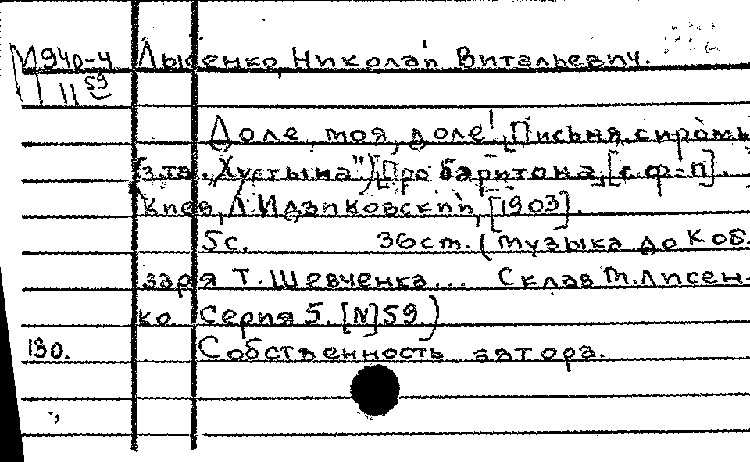 М940-4 Лысенко, Николай Витальевич.
11 59
Доле моя, доле! [Письня сиромы
з тв. „Хустына"] [Про баритона, [с ф-п].
Киев, Л. Идзиковский, [1903].
5с. 36 ст. (Музыка до Коб-
заря Т. Шевченка... Склав М. Лисен-
ко Серия 5. [N] 59)
130. Собственность автора.